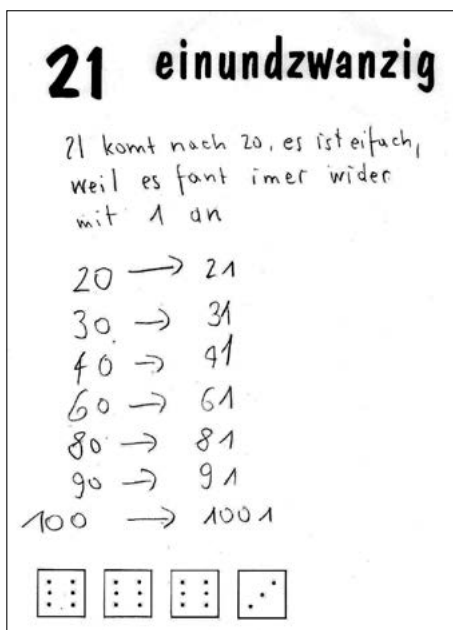 21 einundzwanzig
21 komt nach 20, es ist eifach,
weil es fant imer wider
mit 1 an
20 → 21
30 → 31
40 → 41
60 → 61
80 → 81
90 → 91
100 → 1001